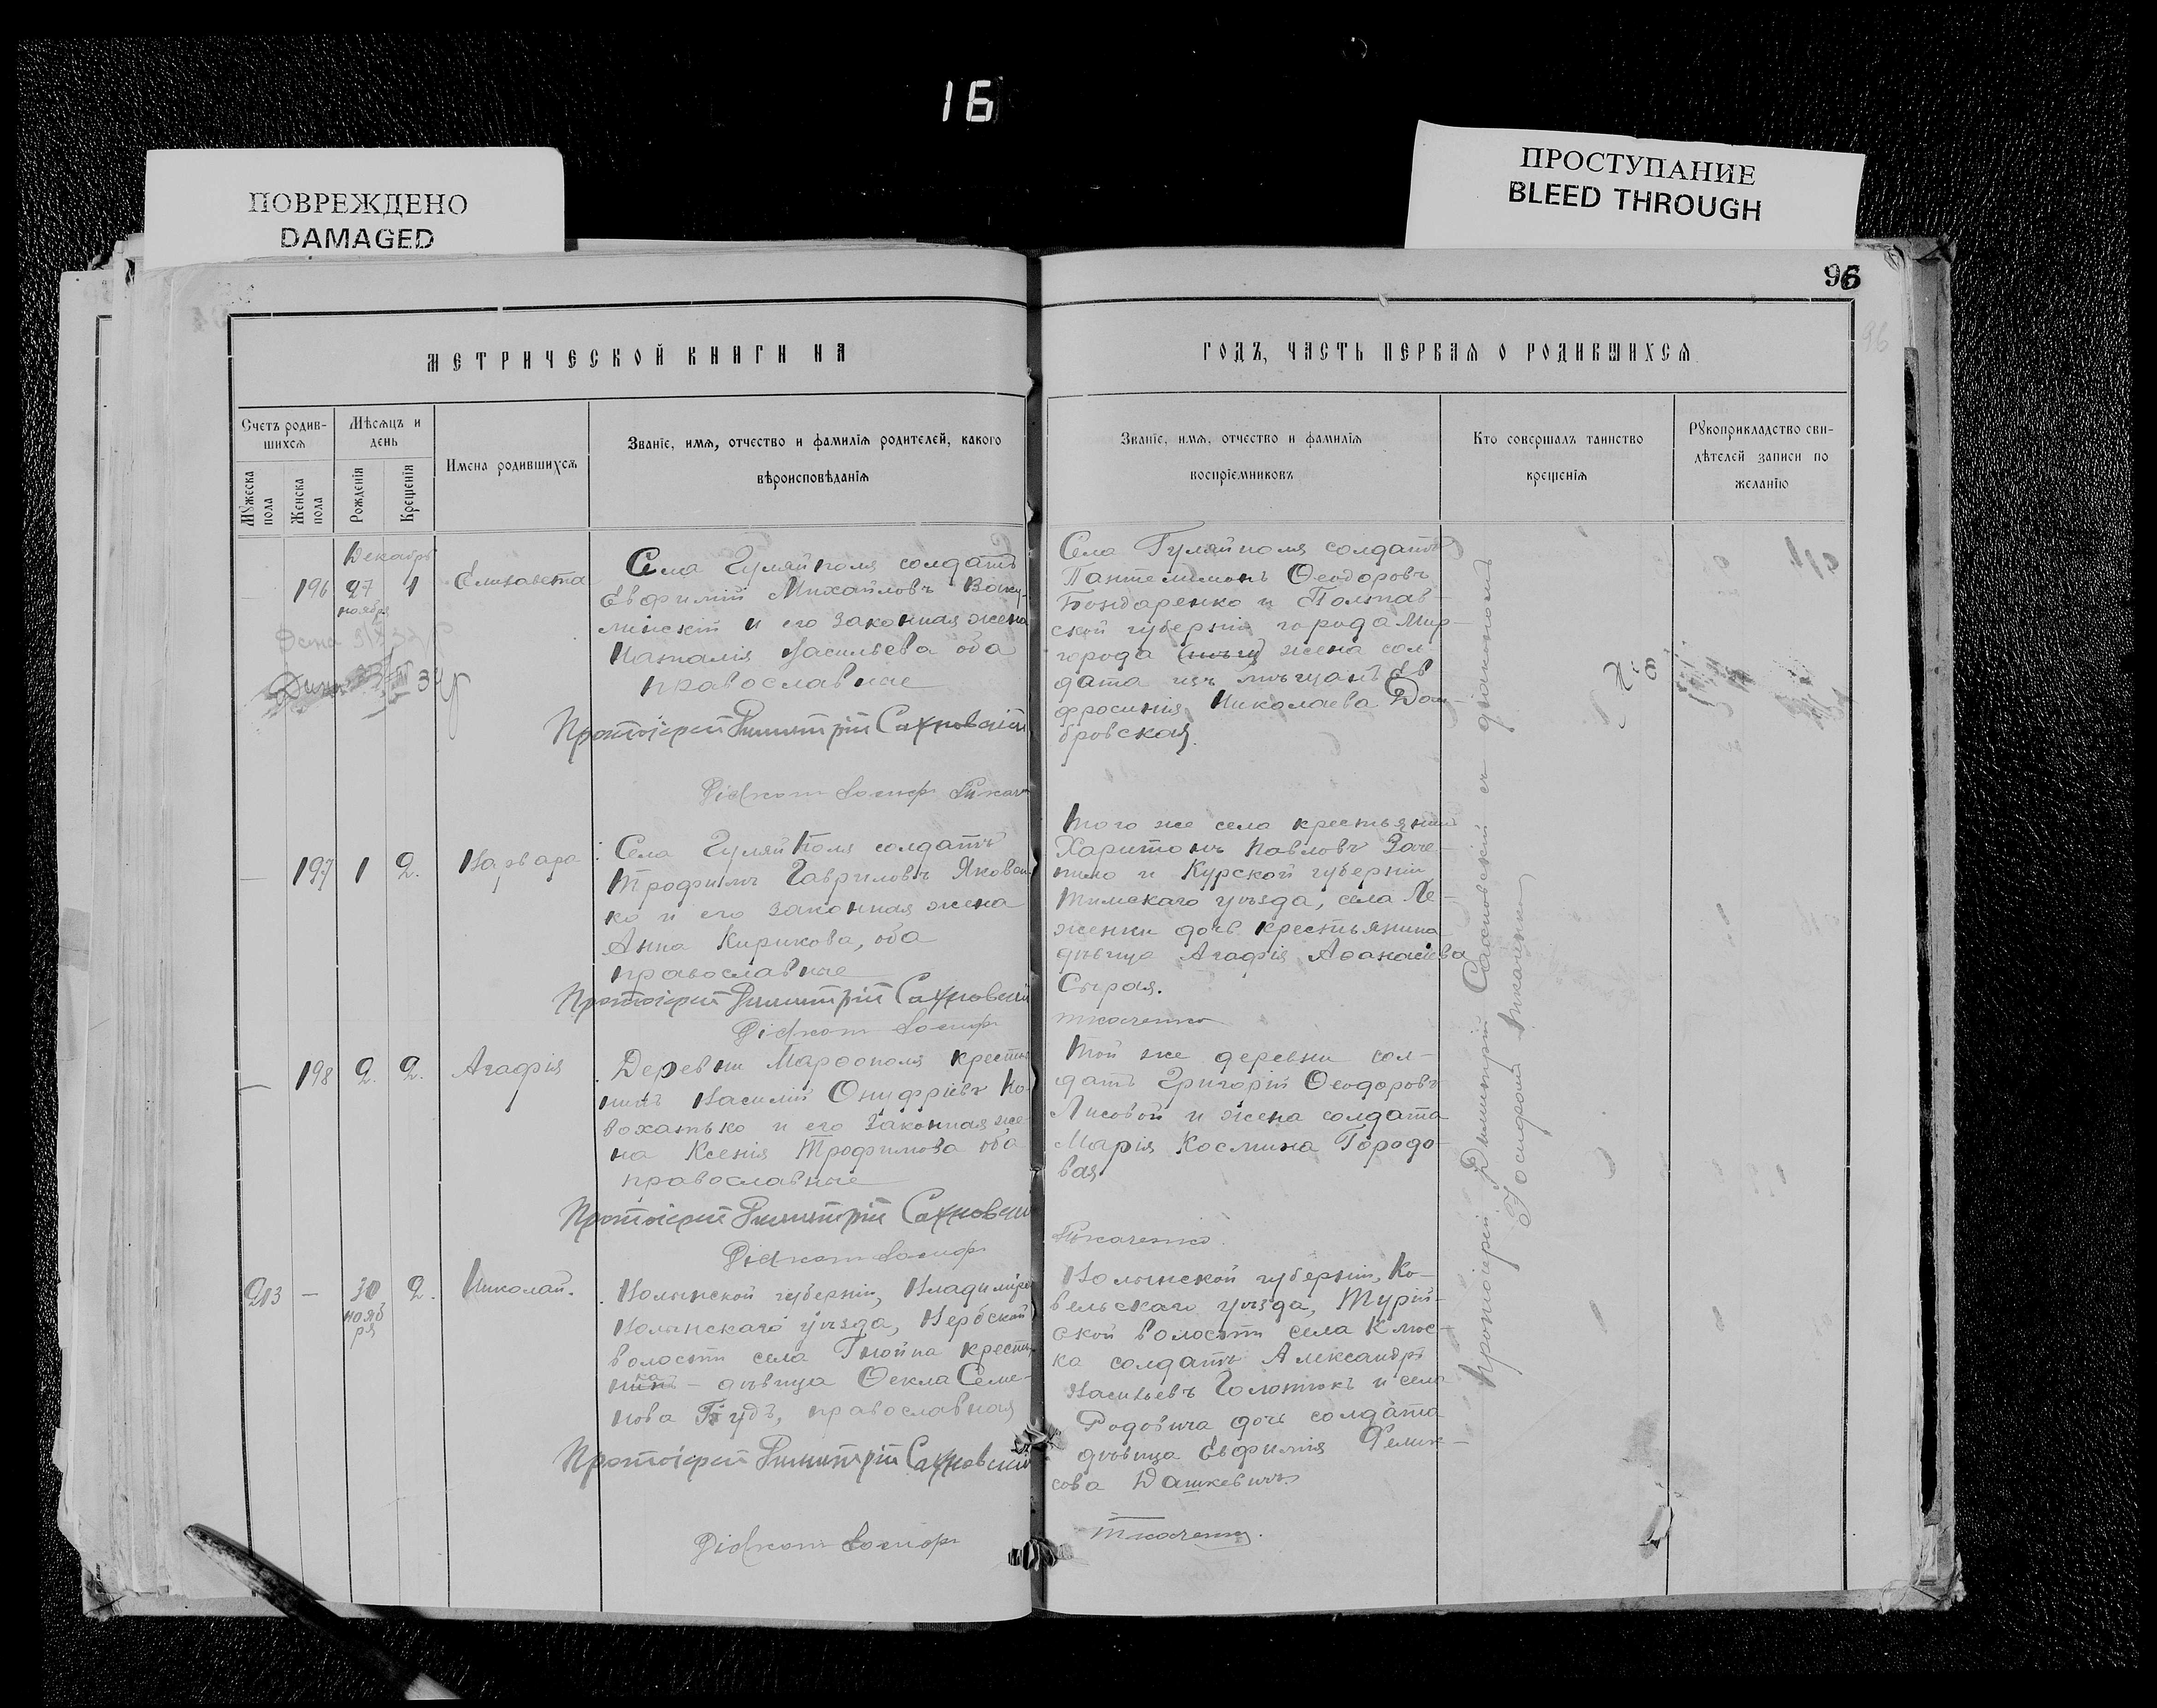 16
ПОВРЕЖДЕНО
DAMAGED
ПРОСТУПАНИЕ
BLEED THROUGH
96
МЕТРИЧЕСКОЙ КНИГИ НА
ГОДЪ, ЧАСТЬ ПЕРВАЯ О РОДИВШИХСЯ
Счетъ родив-
шихся
Мѣсяцъ и
день
Мужеска
пола
Женска
пола
Рожденія
Крещенія
Имена родившихся
Званіе, имя, отчество и фамилія родителей, какого
вѣроисповѣданія
Званіе, имя, отчество и фамилія
воспріемниковъ
Кто совершалъ таинство
крещенія
Рукоприкладство сви-
дѣтелей записи по
желанію
Декабрь
196 27 1 Елизавета
ноября
Села Гуляйполя солдатъ
Евфимій Михайловъ Ваку-
линскій и его законная жена
Наталія Васильева оба
православные
Протоіерей Димитрій Сахновскій
Села Гуляйполя солдатъ
Пантелимонъ Ѳеодоровъ
Бондаренко и Полтав-
ской губерніи города Мир-
города жена сол
дата изъ мѣщанъ Ев
фросинія Николаева Дом-
бровская.
Діаконъ Іосифъ Ткачен
— 197 1 2. Варвара
Села Гуляйполя солдатъ
Трофимъ Гавриловъ Яковен
ко и его законная жена
Анна Кирикова, оба
православные
Протоіерей Димитрій Сахновскій
Діаконъ Іосифъ
Того же села крестьянинъ
Харитонъ Павловъ Заче-
пило и Курской губерніи
Тимскаго уѣзда, села Ле-
женки дочь крестьянина
дѣвица Агафія Аѳанасіева
Сырая.
Ткаченко
— 198 2. 2. Агафія
Деревни Марѳополя крестья
нинъ Василій Онуфріевъ Ко-
вохатько и его законная же
на Ксенія Трофимова оба
православные
Протоіерей Димитрій Сахновскій
Діаконъ Іосифъ
Той же деревни сол-
датъ Григорій Ѳеодоровъ
Лисовой и жена солдата
Марія Космина Городо-
вая
Ткаченко
213 — 30 2. Николай.
нояб
ря
Волынской губерніи, Владиміро
Волынскаго уѣзда, Вербской
волости села Гнойна крестья
нка - дѣвица Ѳекла Семе-
нова православная
Протоіерей Димитрій Сахновскій
Діаконъ Іосифъ
Волынской губерніи, Ко-
вельскаго уѣзда, Турій-
ской волости села Клюс-
ка солдатъ Александръ
Васильевъ Голотюкъ и села
Родовича дочь солдата
дѣвица Евфимія Фелик-
сова Дашкевичъ
Ткаченко.
Протоіерей Димитрій Сахновскій съ діакономъ
Іосифомъ Ткаченко